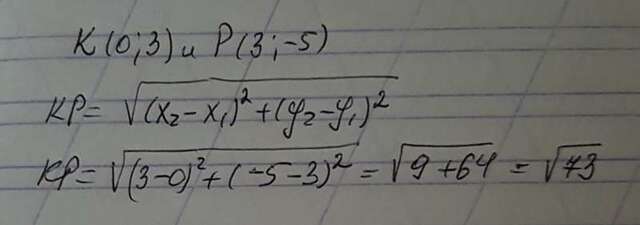 K(0;3) и P(3;-5)
KP= √((x₂-x₁)²+(y₂-y₁)²)
KP= √((3-0)²+(-5-3)²) = √(9+64) = √73